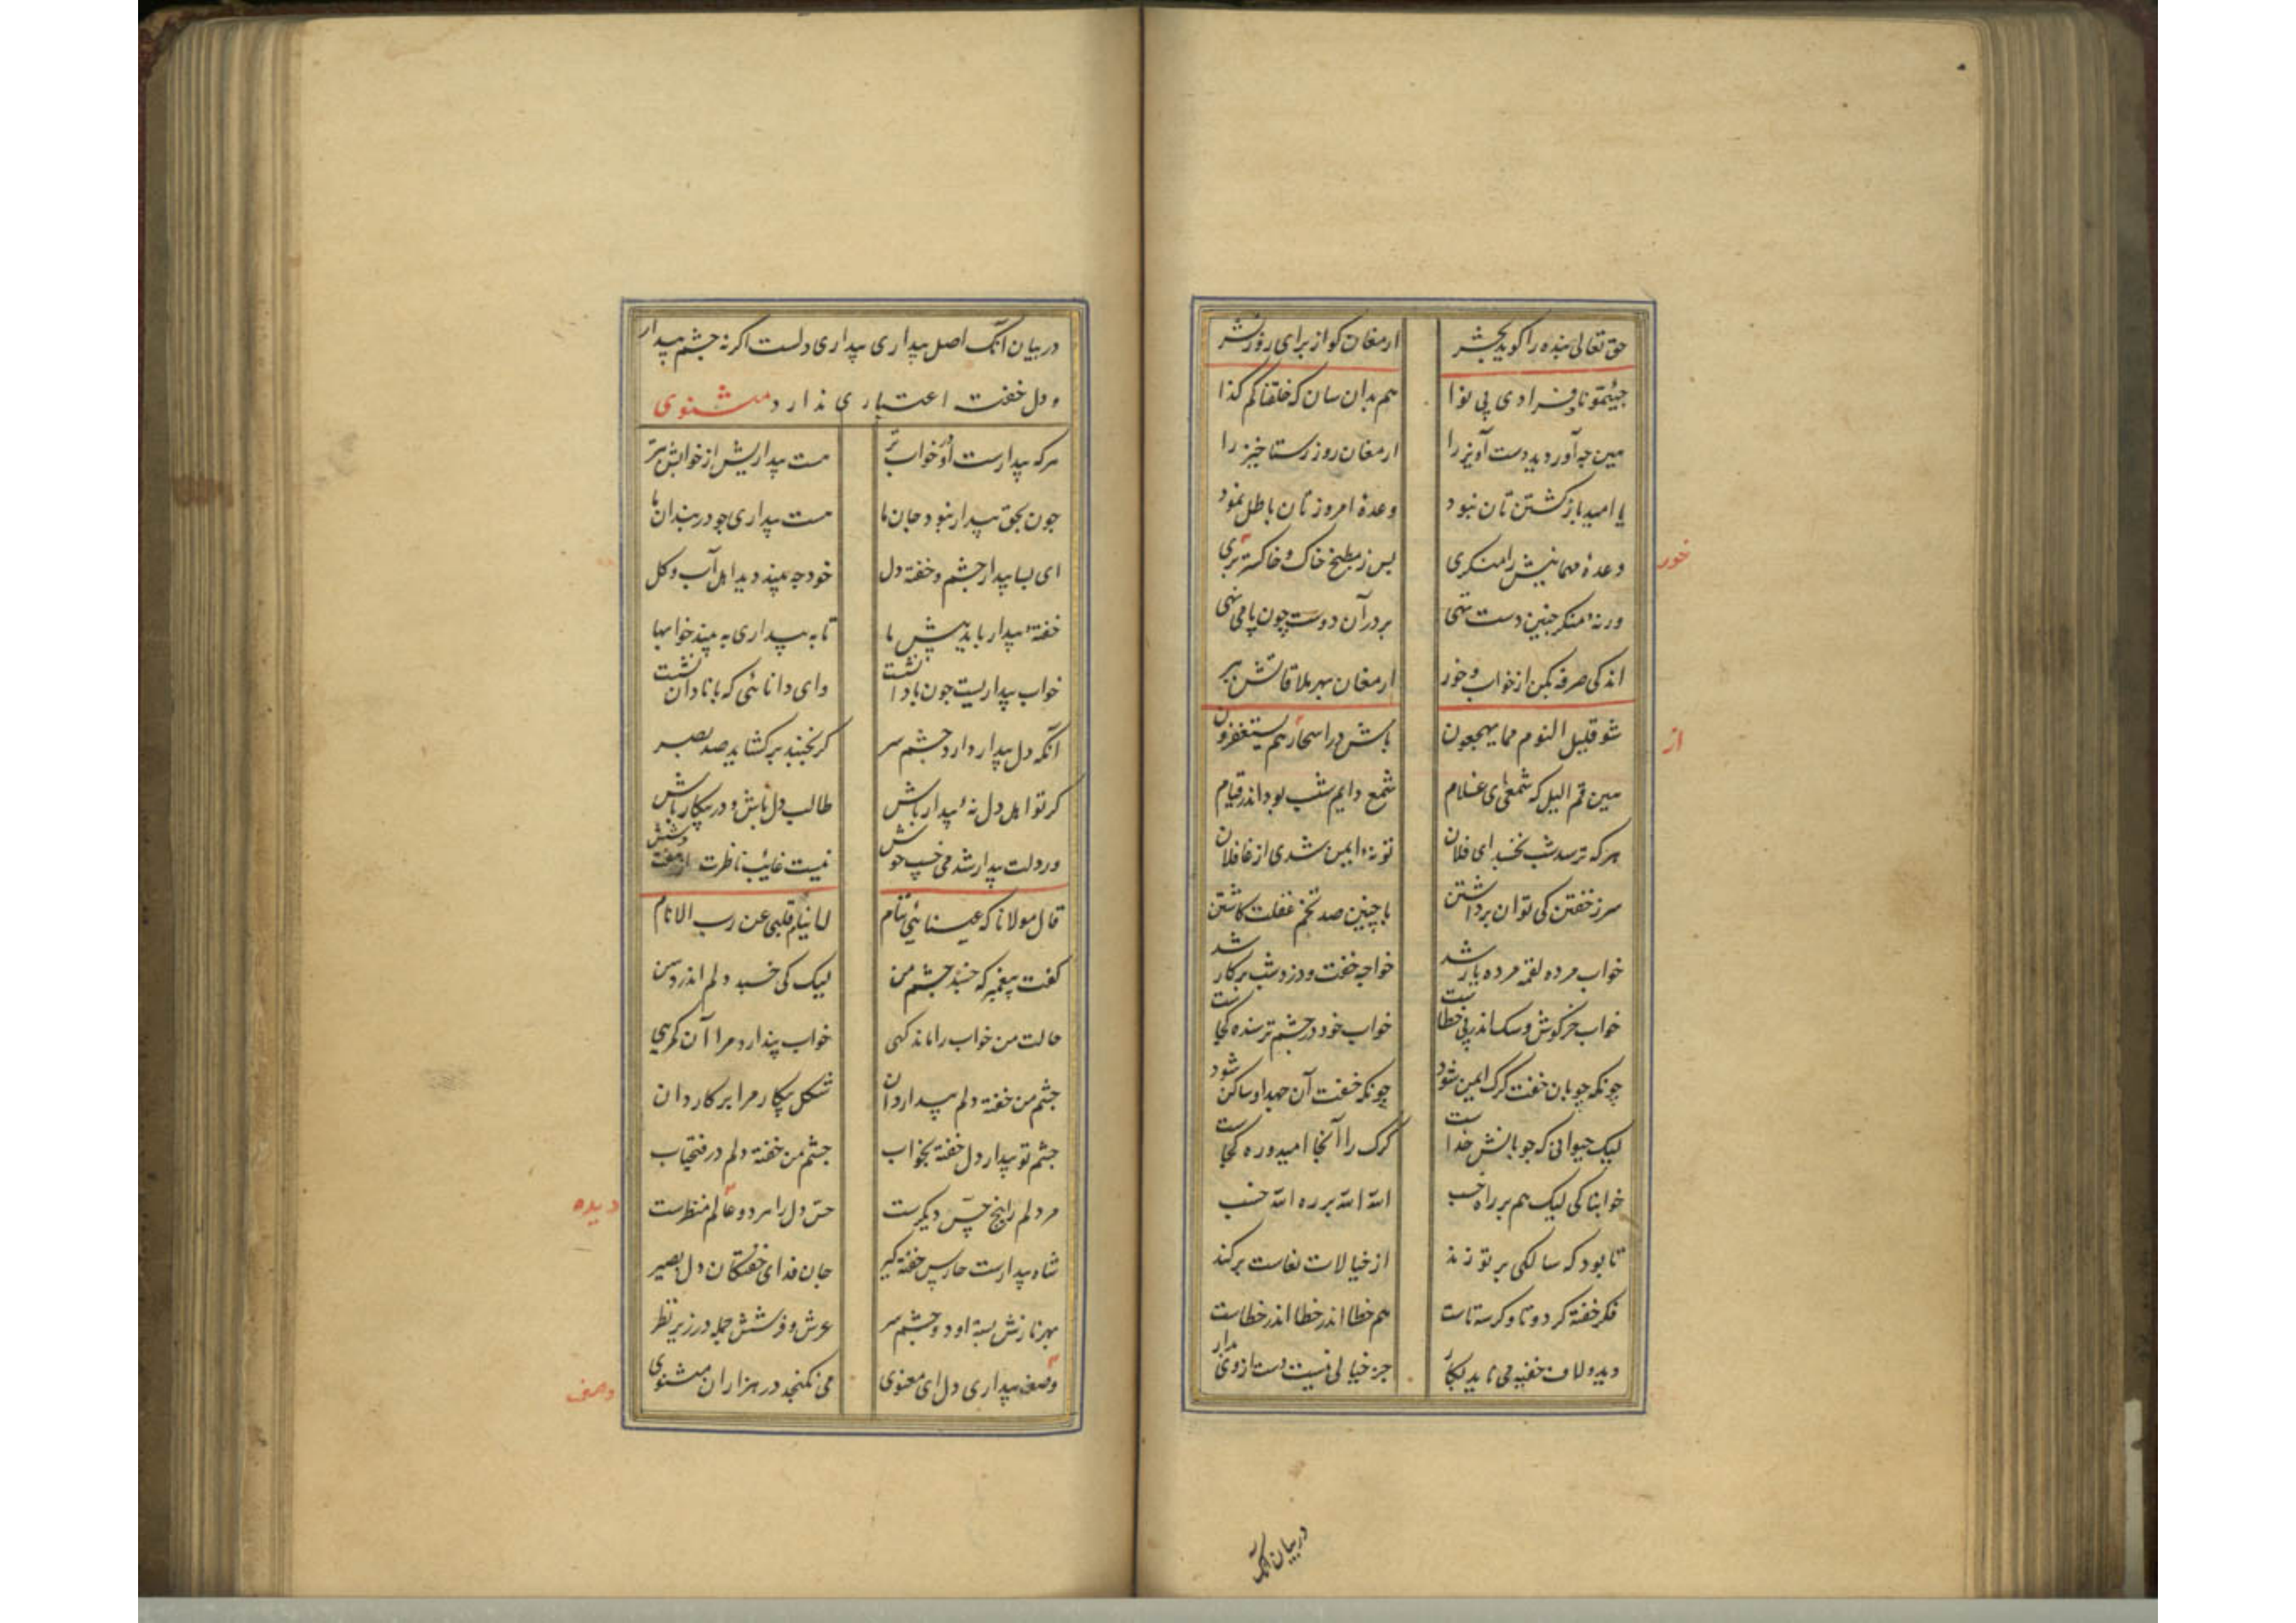 حق تعالی بنده را گوید بحشر ارمغان کو از برای روز نشر
جیئتمونا و فرادی بی نوا هم بدان سان که خلقناکم کذا
هین چه آوردید دست آویز را ارمغان روز رستاخیز را
یا امید باز گشتن تان نبود وعدهٔ امروز تان باطل نمود
وعدهٔ مهمانیش را منکری پس ز مطبخ خاک و خاکستر بری
خور
ورنهٔ منکر چنین دست تهی بر در آن دوست چون پا می نهی
اندکی صرفه بکن از خواب و خور ارمغان بهر ملاقاتش ببر
شو قلیل النوم مما یهجعون باش در اسحار هم یستغفرون
از
هین قم الیل که شمعی ای غلام شمع دایم شب بود اندر قیام
هر که ترسد شب نخسبد ای فلان تو نهٔ ایمن شدی از غافلان
سر ز خفتن کی توان برداشتن با چنین صد تخم غفلت کاشتن
خواب مرده لقمه مرده یار شد خواجه خفت و دزد شب بر کار شد
خواب خرگوش و سک اندر پی خطاست خواب خود در چشم ترسنده کجاست
چونکه چوبان خفت کرک ایمن شود چونکه خفت آن جهد او ساکن شود
لیک حیوانی که جوبانش خداست کرک را آنجا امید و ره کجاست
خوابناکی لیک هم بر راه خسب الله الله بر ره الله خسب
تا بود که سالکی بر تو زند از خیالات نعاست برکند
فکر خفته کر دوتا و کر سه تاست هم خطا اندر خطا اندر خطاست
دیده و لاف خفیه می ناید بکار جز خیالی نیست دست از وی بدار
در بیان آنک
در بیان آنک اصل بیداری بیداری دلست اکر نه جشم بیدار
و دل خفته اعتباری ندارد مثنوی
هرکه بیدارست او در خوابتر هست بیداریش از خوابش بتر
جون بحق بیدار نبود جان ما هست بیداری جو در بندان ما
ای بسا بیدار جشم و خفته دل خود جه بیند دید اهل آب و کل
خفتهٔ بیدار باید پیش ما تا به بیداری به بیند خوابها
خواب بیداریست جون با دانشت وای دانائی که با نادان نشست
آنکه دل بیدار دارد جشم سر کر بخسبد بر کشاید صد بصر
کر تو اهل دل نهٔ بیدار باش طالب دل باش و در پیکار باش
ور دلت بیدار شد می خسپ خوش نیست غایب ناظرت از هفت و شش
قال مولانا که عینائی تنام لا ینام قلبی عن رب الانام
کفت پیغمبر که خسبد جشم من لیک کی خسبد دلم اندر وسن
حالت من خواب را ماند کهی خواب پندارد مرا آن کمرهی
جشم من خفته دلم بیدار دان شکل بیکار مرا بر کار دان
جشم تو بیدار دل خفته بخواب جشم من خفته دلم در فتحیاب
مر دلم را پنج حس دیکرست حس دل را هر دو عالم منظرست
دیده
شاه بیدارست حارس خفته کیر جان فدای خفتکان دل بصیر
بهر نازش بسته او دو چشم سر عرش و فرشش جمله در زیر نظر
وصف بیداری دل ای معنوی می نکنجد در هزاران مثنوی
وصف